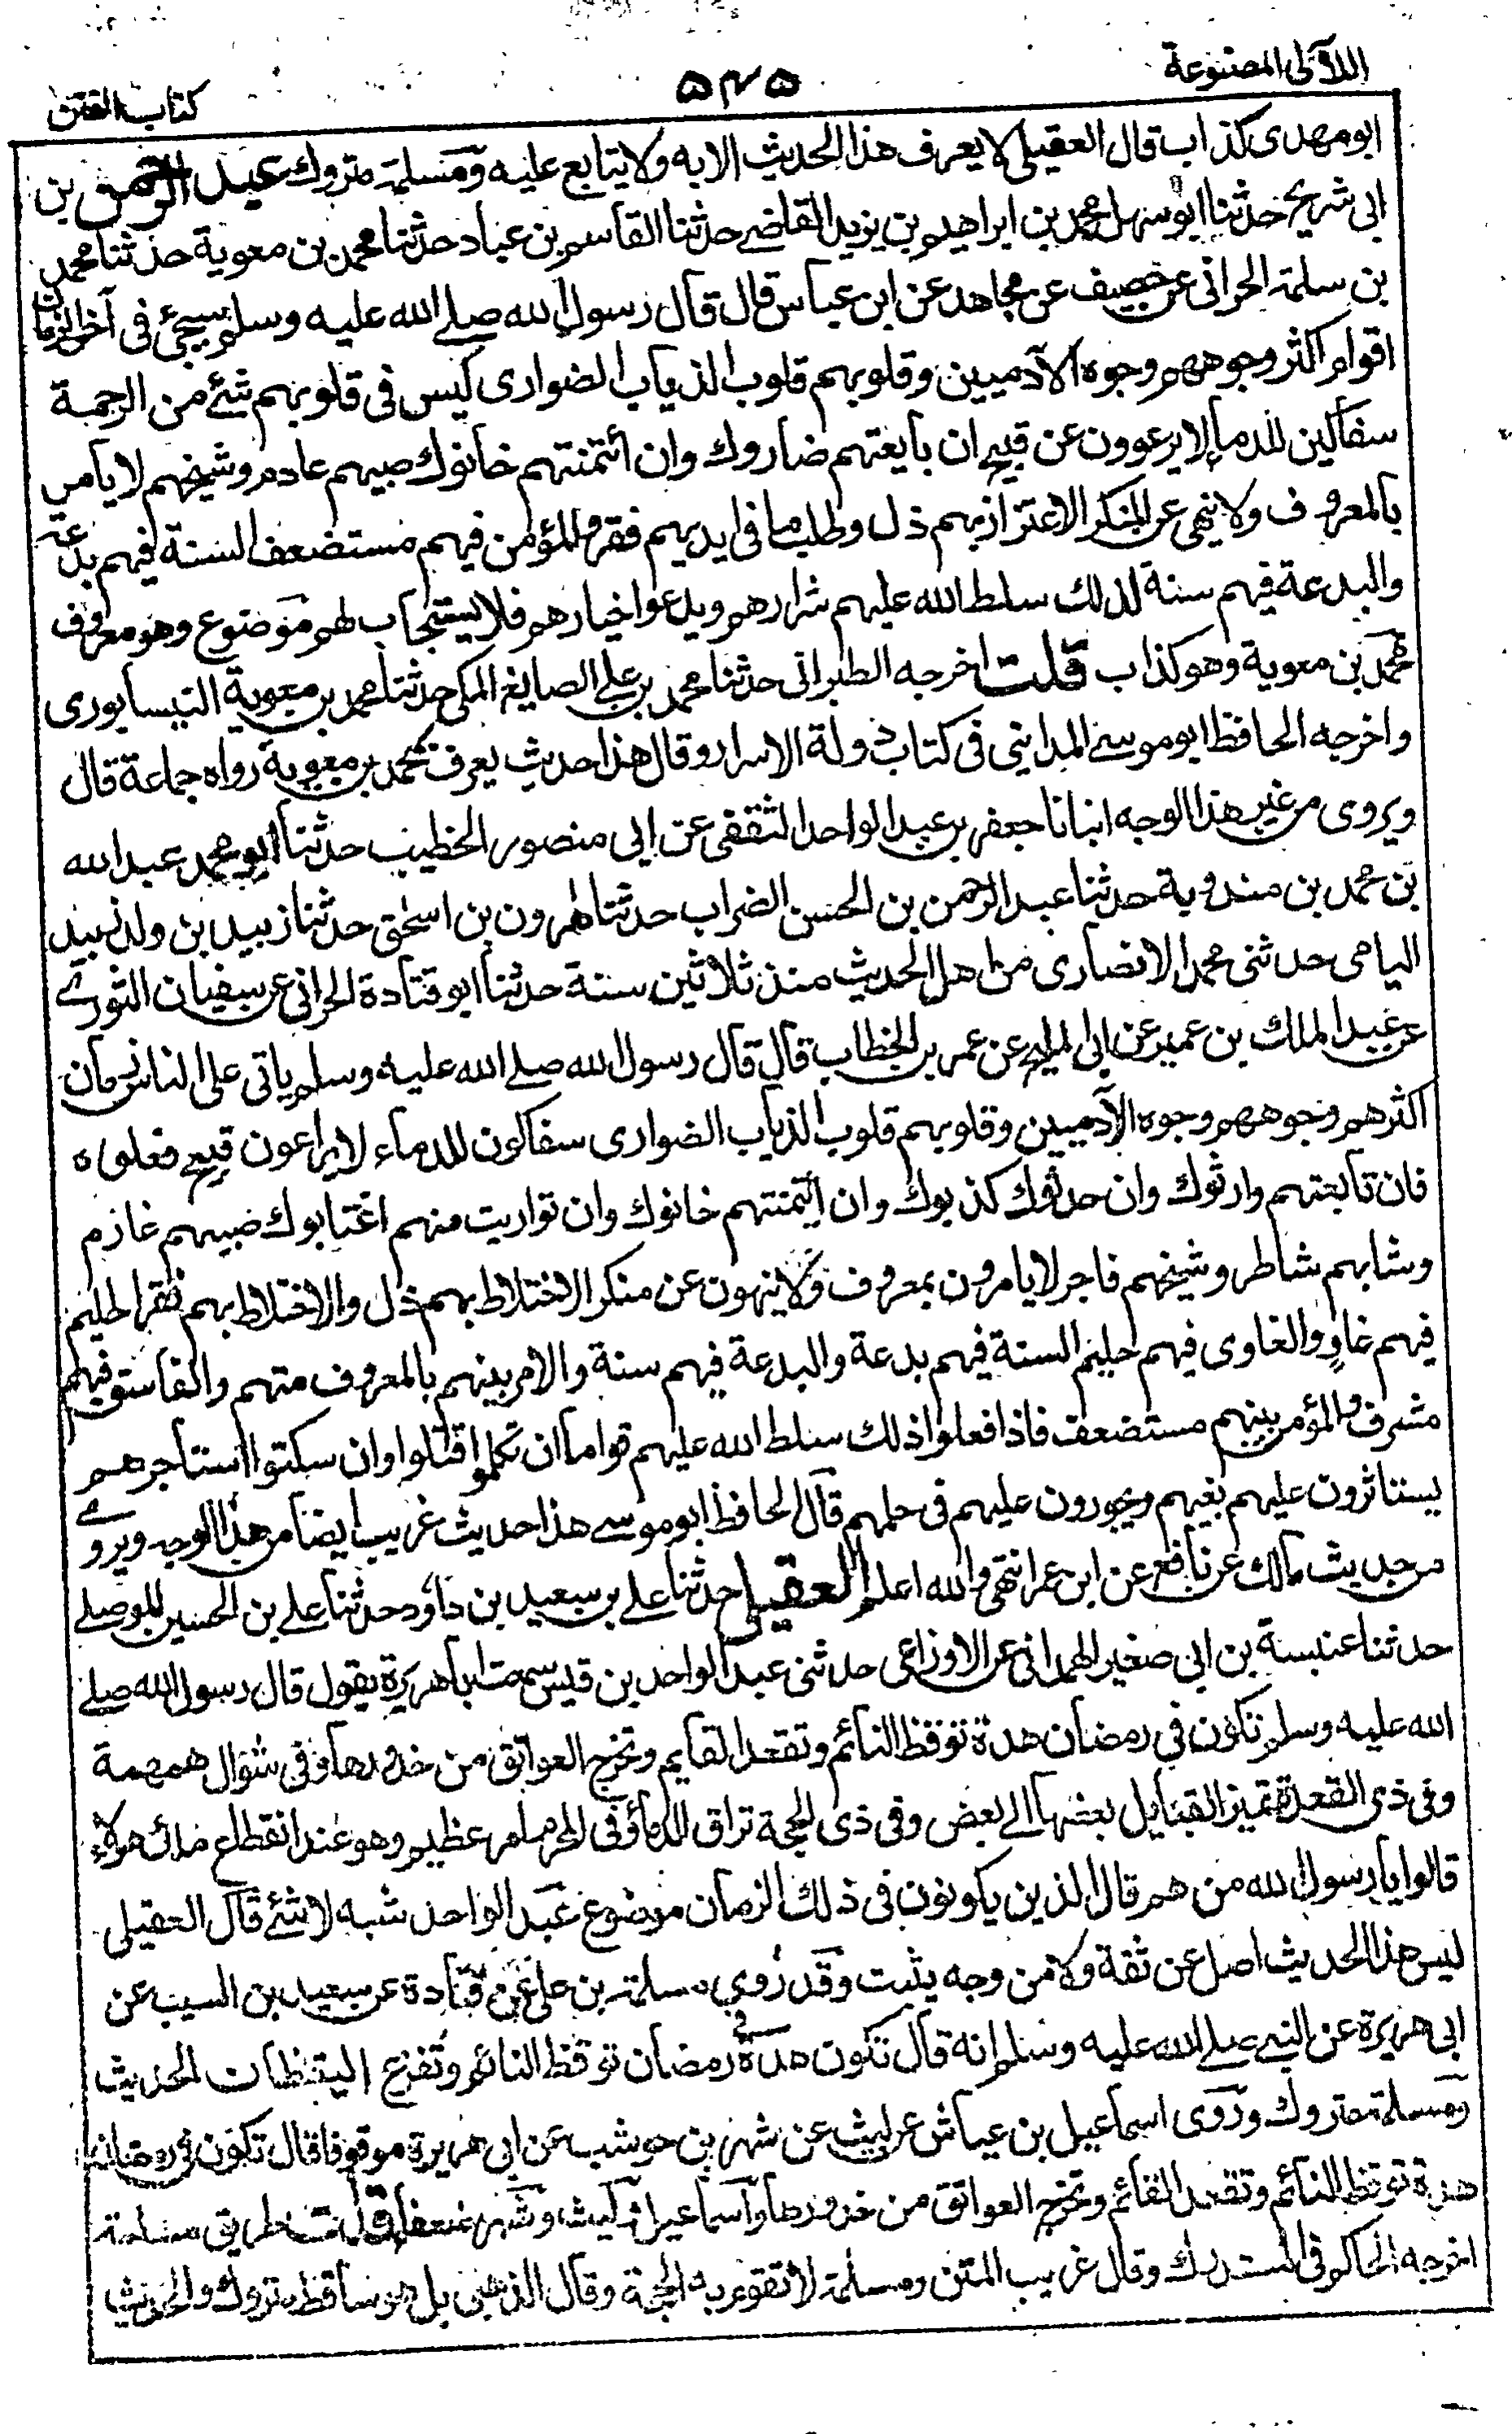 اللآلى المصنوعة
۵۴۵
كتاب الفتن
ابو مهدى كذاب قال العقيلى لا يعرف هذا الحديث الا به ولا يتابع عليه ومسلمة متروك عبد الرحمن بن
ابى شريح حدثنا ابو سهل محمد بن ابراهيم بن يزيد القاضے حدثنا القاسم بن عباد حدثنا محمد بن معوية حدثنا محمد
بن سلمة الحرانى عن خصيف عن مجاهد عن ابن عباس قال قال رسول الله صلے الله عليه وسلم سيجئ فى آخر الزمان
اقوام اكثر وجوههم وجوه الآدميين وقلوبهم قلوب الذياب الضوارى ليس فى قلوبهم شئ من الرحمة
سفاكين للدماء لا يرعوون عن قبيح ان بايعتهم ضاروك وان ائتمنتهم خانوك صبيهم عادم وشيخهم لا يامر
بالمعروف ولا ينهى عن المنكر الاعتزاز بهم ذل وطلب ما فى ايديهم فقر والمؤمن فيهم مستضعف السنة فيهم بدعة
والبدعة فيهم سنة لذلك سلط الله عليهم شرارهم ويدعوا خيارهم فلا يستجاب لهم موضوع وهو معروف
بمحمد بن معوية وهو كذاب قلت اخرجه الطبرانى حدثنا محمد بن على الصايغ المكى حدثنا محمد بن معوية النيسابورى
واخرجه الحافظ ابو موسے المدايني فى كتاب دولة الاسرار وقال هذا حديث يعرف بمحمد بن معوية رواه جماعة قال
ويروى من غير هذا الوجه انبانا جعفر بن عبد الواحد الثقفى عن ابى منصور الخطيب حدثنا ابو محمد عبد الله
بن محمد بن مندوية حدثنا عبد الرحمن بن الحسن الضراب حدثنا هرون بن اسحق حدثنا زبيد بن ولد زبيد
اليامى حدثنى محمد الانصارى من اهل الحديث منذ ثلاثين سنة حدثنا ابو قتادة الحرانى عن سفيان الثورے
عن عبد الملك بن عمير عن ابى المليح عن عمر بن الخطاب قال قال رسول الله صلے الله عليه وسلم ياتى على الناس زمان
اكثرهم وجوههم وجوه الآدميين وقلوبهم قلوب الذياب الضوارى سفاكون للدماء لا يراعون قبيح فعلوه
فان تابعتهم وارثوك وان حدثوك كذبوك وان ايتمنتهم خانوك وان تواريت منهم اغتابوك صبيهم عازم
وشابهم شاطر وشيخهم فاجر لا يامرون بمعروف ولا ينهون عن منكر الاختلاط بهم ذل والاختلاط بهم فقر الحليم
فيهم غاو والغاوى فيهم حليم السنة فيهم بدعة والبدعة فيهم سنة والامر بينهم بالمعروف متهم والفاسق فيهم
مشرف والمؤمن بينهم مستضعف فاذا فعلوا ذلك سلط الله عليهم قواما ان تكلموا قتلوا وان سكتوا استاجرهم
يستاثرون عليهم بغيهم ويجورون عليهم فى حلمهم قال الحافظ ابو موسے هذا حديث غريب ايضا من هذا الوجه ويروے
من حديث مالك عن نافع عن ابن عمر انتهى والله اعلم العقيلى حدثنا على بن سعيد بن داود حدثنا على بن الحسين الموصلے
حدثنا عنبسة بن ابى صغير الهمدانى عن الاوزاعى حدثنى عبد الواحد بن قيس سمعت ابا هريرة يقول قال رسول الله صلے
الله عليه وسلم تكون فى رمضان هدة توقظ النائم وتقعد القايم وتخرج العواتق من خدورها وفى شوال همهمة
وفى ذى القعدة تميز القبايل بعضها الے بعض وفى ذى الحجة تراق الدماء وفى المحرم امر عظيم وهو عند انقطاع ملك هولاء
قالوا يا رسول الله من هم قال الذين يكونون فى ذلك الزمان موضوع عبد الواحد شبه لا شئ قال العقيلى
ليس هذا الحديث اصل عن ثقة ولا من وجه يثبت وقد روى مسلمة بن على عن قتادة عن سعيد بن المسيب عن
ابى هريرة عن النبے صلے الله عليه وسلم انه قال تكون هدة فى رمضان توقظ النائم وتفزع اليقظان الحديث
ومسلمة متروك وروى اسماعيل بن عياش عن ليث عن شهر بن حوشب عن ابى هريرة موقوفا قال تكون فى رمضان
هدة توقظ النائم وتقعد القائم وتخرج العواتق من خدورها واسماعيل وليث وشهر ضعفاء قلت طريق مسلمة
اخرجه الحاكم فى المستدرك وقال غريب المتن ومسلمة لا تقوم به الحجة وقال الذهبى بل هو ساقط متروك والحديث